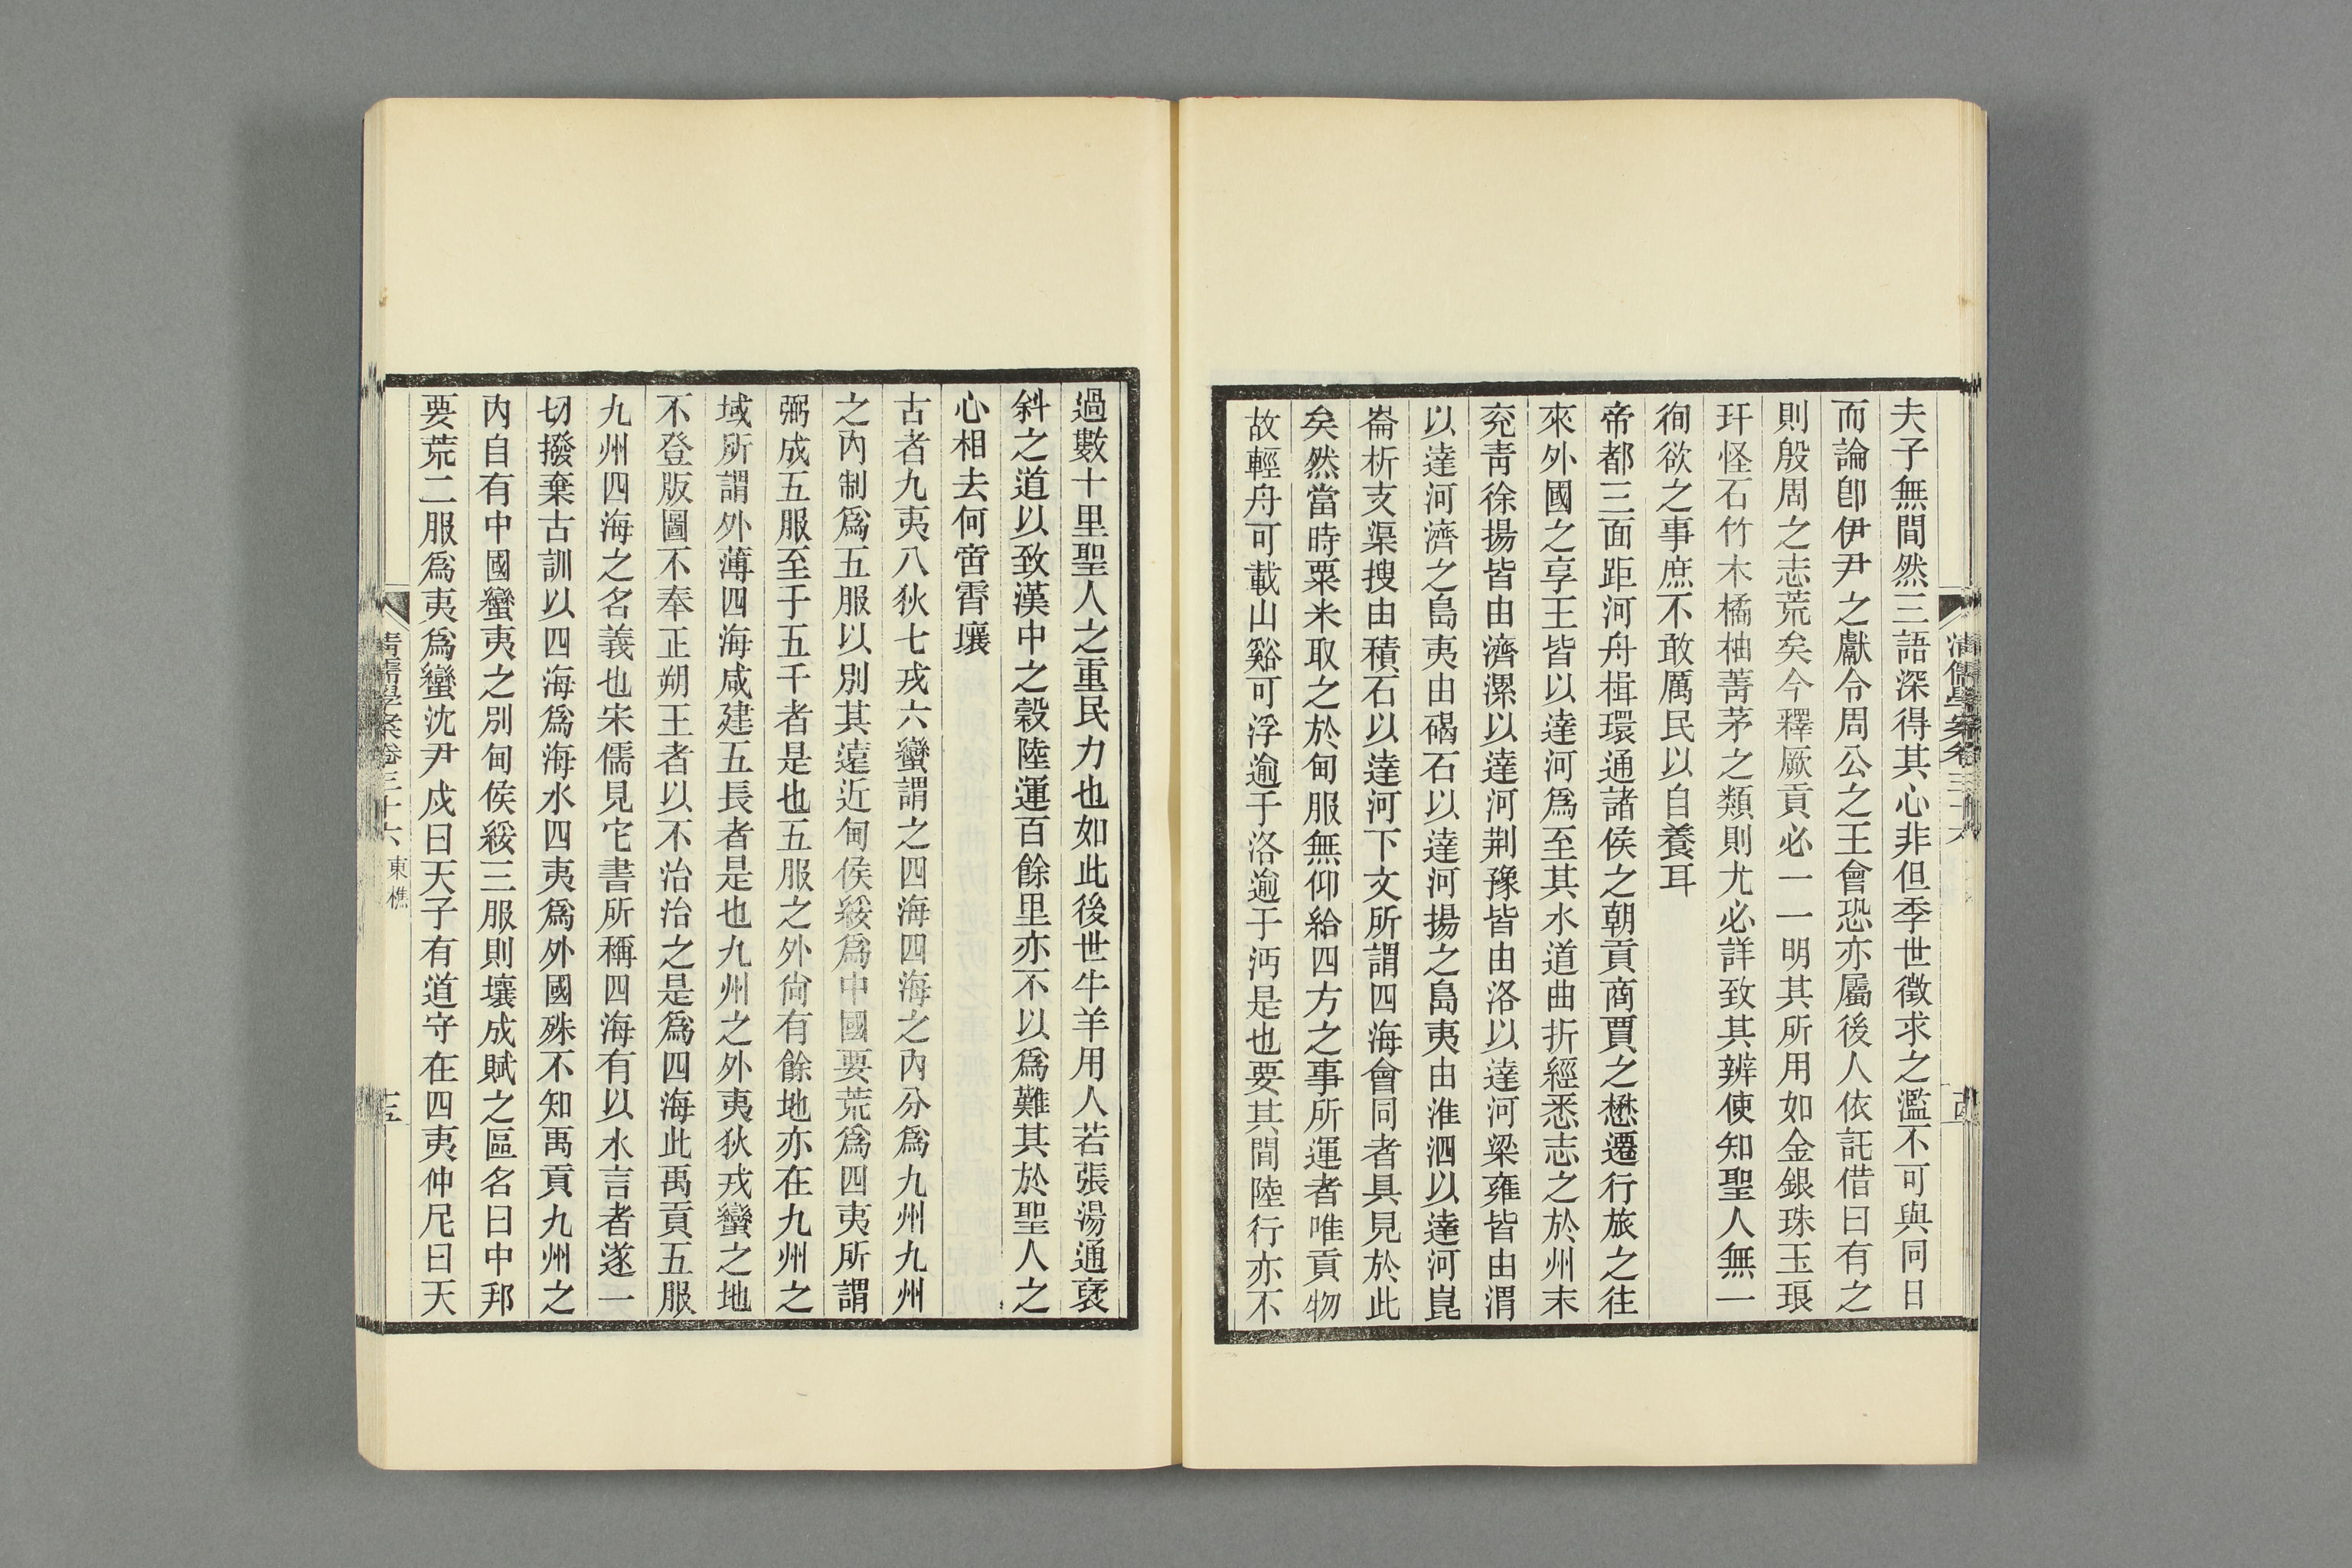 清儒學案卷三十六
夫子無間然三語深得其心非但季世徵求之濫不可與同日
而論卽伊尹之獻令周公之王會恐亦屬後人依託借曰有之
則殷周之志荒矣今釋厥貢必一一明其所用如金銀珠玉琅
玕怪石竹木橘柚菁茅之類則尤必詳致其辨使知聖人無一
徇欲之事庶不敢厲民以自養耳
帝都三面距河舟楫環通諸侯之朝貢商賈之懋遷行旅之往
來外國之享王皆以達河爲至其水道曲折經悉志之於州末
兖靑徐揚皆由濟漯以達河荆豫皆由洛以達河梁雍皆由渭
以達河濟之島夷由碣石以達河揚之島夷由淮泗以達河崑
崙析支渠搜由積石以達河下文所謂四海會同者具見於此
矣然當時粟米取之於甸服無仰給四方之事所運者唯貢物
故輕舟可載山谿可浮逾于洛逾于沔是也要其間陸行亦不
過數十里聖人之重民力也如此後世牛羊用人若張湯通褒
斜之道以致漢中之穀陸運百餘里亦不以爲難其於聖人之
心相去何啻霄壤
古者九夷八狄七戎六蠻謂之四海四海之內分爲九州九州
之內制爲五服以別其遠近甸侯綏爲中國要荒爲四夷所謂
弼成五服至于五千者是也五服之外尙有餘地亦在九州之
域所謂外薄四海咸建五長者是也九州之外夷狄戎蠻之地
不登版圖不奉正朔王者以不治治之是爲四海此禹貢五服
九州四海之名義也宋儒見它書所稱四海有以水言者遂一
切撥棄古訓以四海爲海水四夷爲外國殊不知禹貢九州之
內自有中國蠻夷之別甸侯綏三服則壤成賦之區名曰中邦
要荒二服爲夷爲蠻沈尹戍曰天子有道守在四夷仲尼曰天
清儒學案卷三十六 東樵
十五